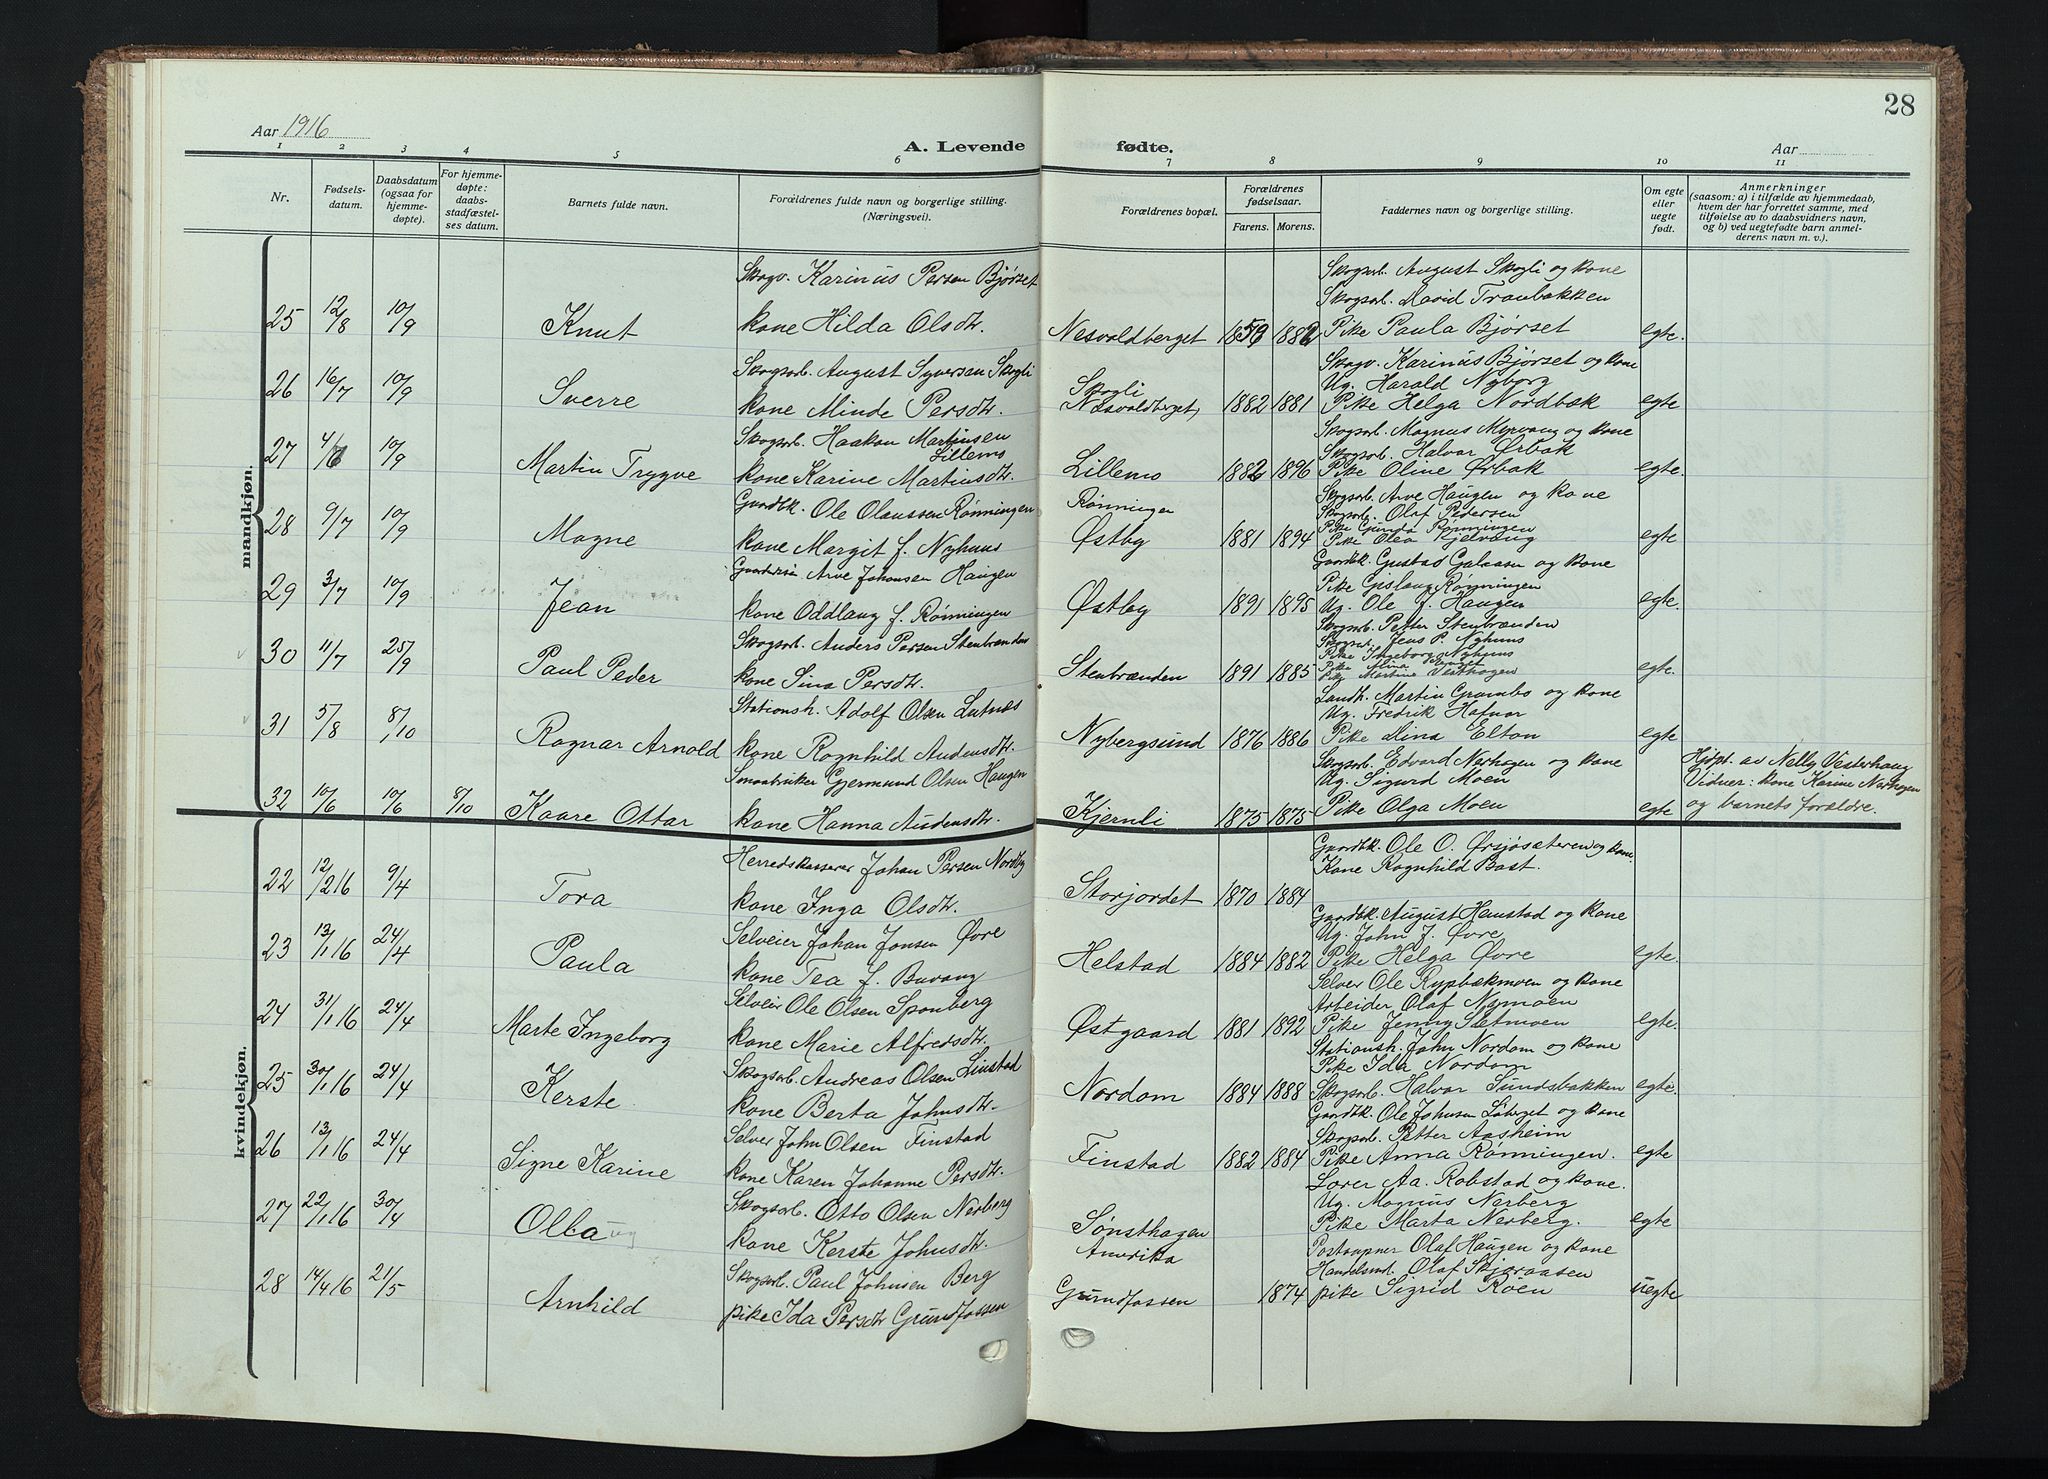 28
Aar 1916
A. Levende fødte.
Aar
1 2 3 4 5 6 7 8 9 10 11
Nr. Fødsels-datum. Daabsdatum (ogsaa for hjemme-døpte). For hjemme-døpte: daabs-stadfæstel-ses datum. Barnets fulde navn. Forældrenes fulde navn og borgerlige stilling. (Næringsvei). Forældrenes bopæl. Forældrenes fødselsaar. Farens. Morens. Faddernes navn og borgerlige stilling. Om egte eller uegte født. Anmerkninger (saasom: a) i tilfælde av hjemmedaab, hvem der har forrettet samme, med tilføielse av to daabsvidners navn, og b) ved uegtefødte barn anmel-derens navn m. v.).
mandkjøn.
Skogv. Karinus Persen Bjørset Skogsarb. August Skogli og kone
Skogsarb. David Tranbakken
25 12/8 10/9 Knut kone Hilda Olsdtr. Nesvoldberget 1859 1882 Pike Paula Bjørset egte.
Skogsarb. August Syversen Skogli Skogv. Karinus Bjørset og kone
Skogli Ug. Harald Nyborg
26 16/7 10/9 Sverre kone Minde Persdtr. Nesvoldberget, 1882 1881 Pike Helga Nordbæk egte
Skogsarb. Haakon Martinsen Lillemo Skogsarb. Magnus Myrvang og kone
Skogsarb. Halvar Ørbak
27 4/6 10/9 Martin Trygve kone Karine Martinsdtr. Lillemo 1882 1896 Pike Oline Ørbak egte.
Gaardbk. Ole Olaussen Rønningen Rønningen Skogsarb. Arve Haugen og kone
Skogsarb. Olaf Pedersen
Pike Gunda Rønningen
28 9/7 10/9 Magne kone Margit f. Nyhuus Østby 1881 1894 Pike Olea Kjelvang egte
Arve Johansen Haugen Gaardbk. Gustad Galaasen og kone
Pike Gislaug Rønningen
29 3/7 10/9 Jean kone Oddlaug f. Rønningen Østby 1891 1895 Ug. Ole J. Haugen egte.
Skogsarb. Anders Persen Stenbrænden Skogsarb. Petter Stenbrænden
Jens P. Nyhuus
Pike Ingeborg Nyhuus
30 11/7 25/9 Paul Peder kone Sina Persdtr. Stenbrænden 1891 1885 Pike Martine Vesthagen egte.
Stationsh. Adolf Olsen Lutnæs Landh. Martin Grambo og kone
Ug. Fredrik Hafnor
31 5/8 8/10 Ragnar Arnold kone Ragnhild Audensdtr. Nybergsund 1876 1886 Pike Dina Elton egte
Smaabruker Gjermund Olsen Haugen Skogsarb. Edvard Nerhagen og kone Hjdpt. av Nelly Vesterhaug
Ug. Sigurd Moen Vidner: kone Karine Nerhagen
32 10/6 10/6 8/10 Kaare Ottar kone Hanna Audensdtr. Kjernli 1875 1875 Pike Olga Moen egte og barnets forældre.
kvindekjøn.
Herredskasserer Johan Persen Nordby Gaardbk. Ole O. Ørsjøsæteren og kone.
Kone Ragnhild Bast.
22 12/2 16 9/4 Tora kone Inga Olsdtr. Storjordet 1870 1884
Selveier Johan Jonsen Øvre Gaardbk. August Hanstad og kone
Ug. John J. Øvre
23 13/1 16 24/4 Paula kone Tea f. Buvang Helstad 1884 1882 Pike Helga Øvre egte.
Selveier Ole Olsen Sponberg Selver Ole Rypbækmoen og kone
Arbeider Olaf Nymoen
24 31/1 16 24/4 Marte Ingeborg kone Marie Alfredsdtr. Østgaard 1881 1892 Pike Jenny Sletmoen egte.
Skogsarb. Andreas Olsen Linstad Stationsh. John Nordom og kone
Pike Ida Nordom
25 30/1 16 24/4 Kerste kone Berta Johnsdtr. Nordom 1884 1888 Skogsarb. Halvar Sundsbakken egte.
Selver John Olsen Finstad Gaardbk. Ole Johnsen Løberget og kone
Skogsarb. Petter Aasheim
26 13/1 16 24/4 Signe Karine kone Karen Johanne Persdtr. Finstad 1882 1884 Pike Anna Rønningen. egte
Skogsarb. Otto Olsen Nerberg Lærer Aa. Robstad og kone.
Ug. Magnus Nerberg
27 22/1 16 30/4 Ollaug kone Kerste Johnsdtr. Sønsthagen Pike Marta Nerberg. egte
Skogsarb. Paul Johnsen Berg Amerika Postaapner Olaf Haugen og kone
Handelsmd. Olaf Skjæraasen
28 14/4 16 21/5 Arnhild pike Ida Persdtr Grundfossen Grundfossen 1874 pike Sigrid Roen uegte